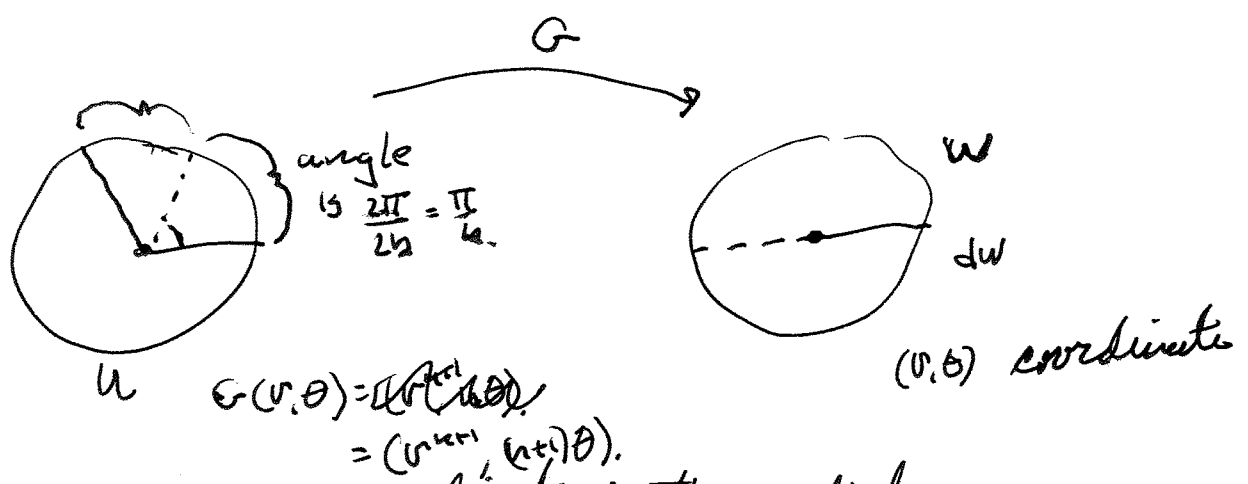 G
angle
is 2π/2k = π/k.
W
dW
U
(r, θ) coordinate
G(r, θ) =
= (r^{k+1}, (k+1)θ).